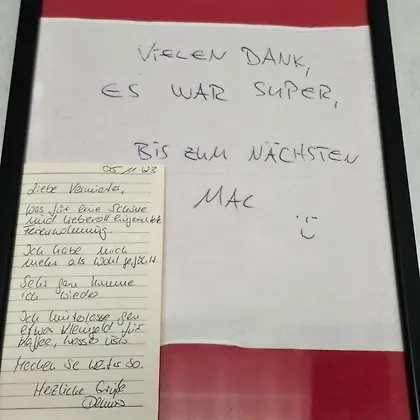 VIELEN DANK,
ES WAR SUPER,
BIS ZUM NÄCHSTEN
MAL
:)
05.11.23
Liebe Vermieter,
Was für eine schöne
und liebevoll eingerichtete
Ferienwohnung.
Ich habe mich
mehr als wohl gefühlt.
Sehr gern komme
ich wieder.
Ich hinterlasse gern
etwas Kleingeld für
Kaffee, Wasser usw.
Machen Sie weiter so.
Herzliche Grüße